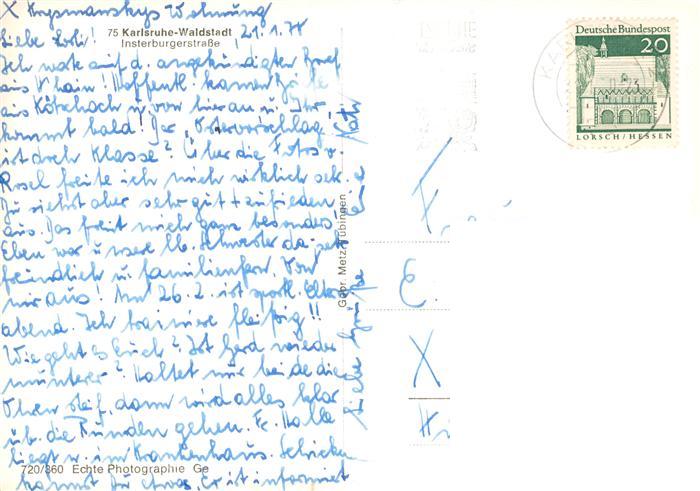 X Krysmanskys Wohnung
75 Karlsruhe-Waldstadt
Insterburgerstraße
21.1.78
Liebe Lori!
Ich warte auf d. angekündigten Brief
aus Vhain! Hoffentl. kamen Grüße
aus Kötschach u. von hier an u. Ihr
kommt bald! Der „Ostervorschlag"
ist doch Klasse? Über die Fotos v.
Rosel freute ich mich wirklich sehr.
Du siehst aber sehr gut + zufrieden
aus. Das freut mich ganz besonders!
Eben war u unsere lb. Schwester da, sehr
freundlich u. familienfr. Von
mir aus! Am 26.2. ist sportl. Eltern
abend. Ich trainiere fleißig!!
Wie geht es Euch? Ist Gerd wieder
munterer? Haltet nur beide die
Ohren steif, dann wird alles klar
üb. die Runden gehen. Fr. Halle
liegt n. im Krankenhaus. Schicken
kannst Du etwas. Er ist informiert
Liebe Grüße
720/360 Echte Photographie Ge
Gebr. Metz Tübingen
F.
E.
X
H.
Deutsche Bundespost
20
LORSCH/HESSEN
KAR